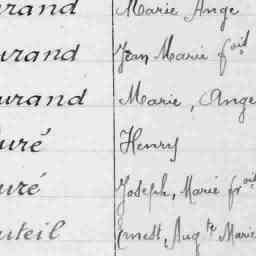 urand Marie Ange
urand Jean Marie f^ois
urand Marie, Ange
uré Henry
uré Joseph, Marie fr^ois
uteil Ernest, Aug^te Marie